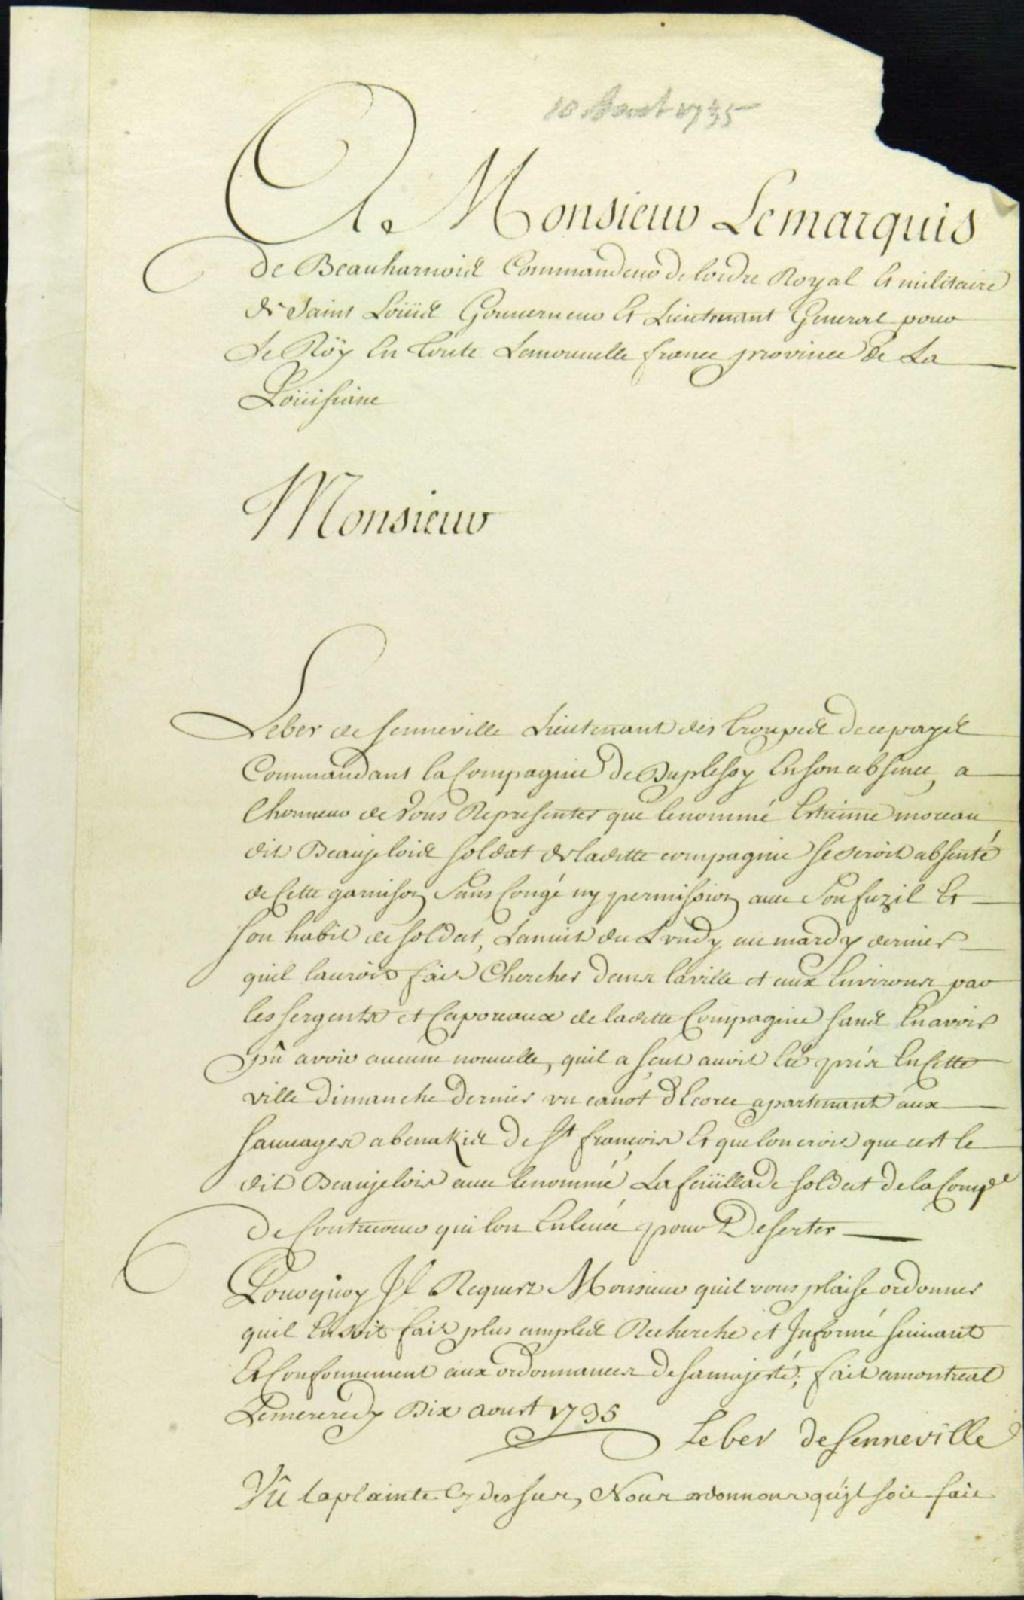 10 Aoust 1735
A Monsieur Lemarquis
de Beauharnois Commandeur de lordre Royal Et militaire
de Saint Loüis Gouverneur Et Lieutenant General pour
Le Röy En toute Lanouvelle france province de La
Loüisiane
Monsieur
Leber de Senneville Lieutenant des troupes de ce pays
Commandant la Compagnie de Duplessy En son absence, a
lhonneur de vous Representer que lenommé Estienne moreau
dit Beaujelois soldat de laditte compagnie se seroit absenté
de Cette garnison Sans Congé ny permission avec Son fuzil Et
son habit de soldat, Lanuit du Lundy au mardy dernier
quil lauroit fait Chercher dans laville et aux Environs par
les sergents et Caporaux de ladite Compagnie sans En avoir
pû avoir aucune nouvelle, quil a sçut avoir Eté pris En Cette
ville dimanche dernier un canot dEcorce apartenant aux
sauvages abenakis de St françois Et que lon croit que cest le
dit Beaujelois avec lenommé La feüillade soldat de la Compe
de Contrecoeur qui lon Enlevé pour Deserter
Pourquoy Il Requiert Monsieur quil vous plaise ordonner
quil En soit fait plus amples Recherche et Informé suivant
Et Conformement aux ordonnances de samajesté; fait amontreal
Lemercredy Dix aoust 1735
Leber de Senneville
Vû la plainte Cy dessus, Nous ordonnons qu'yl soit fait